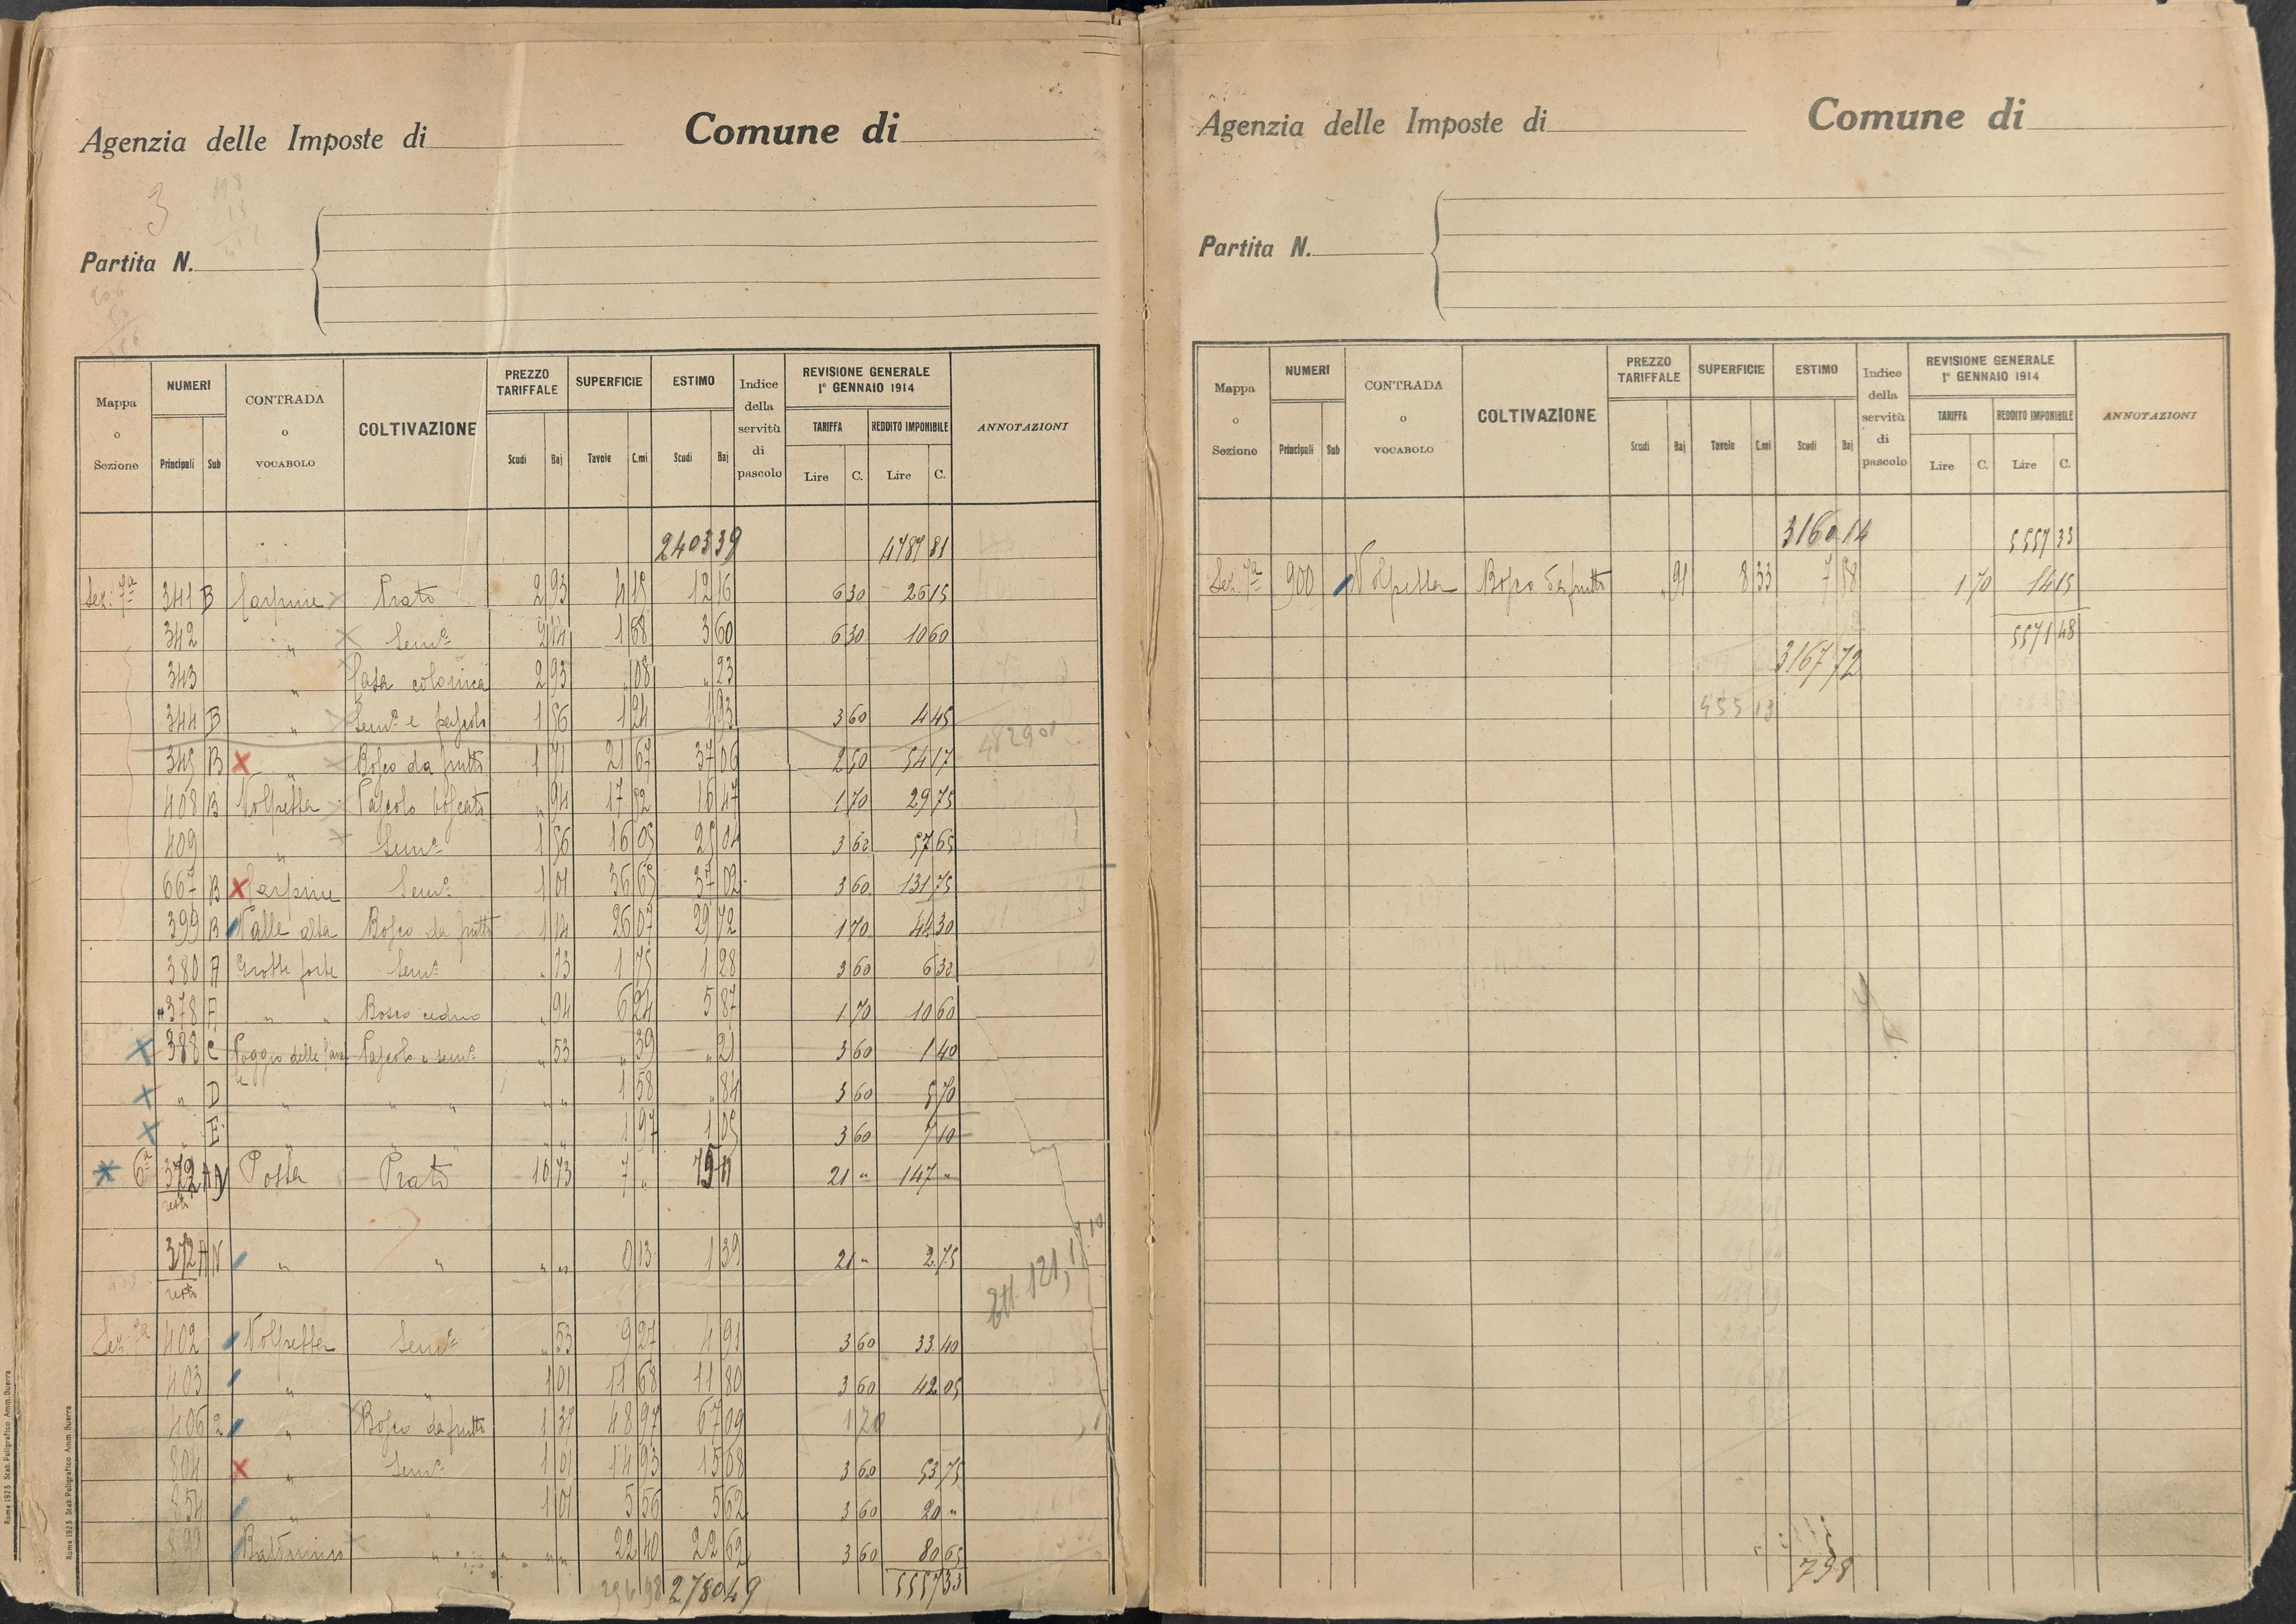 Agenzia delle Imposte di Comune di
3
Partita N.
Mappa o Sezione NUMERI Principali Sub CONTRADA o VOCABOLO COLTIVAZIONE PREZZO TARIFFALE Scudi Baj SUPERFICIE Tavole C.mi ESTIMO Scudi Baj Indice della servitù di pascolo REVISIONE GENERALE 1° GENNAIO 1914 TARIFFA Lire C. REDDITO IMPONIBILE Lire C. ANNOTAZIONI
2403 39 4787 81
Sez: 7ª 341 B Carpine Prato 2 93 4 15 12 16 6 30 26 15
342 " Semº 2 14 1 68 3 60 6 30 10 60
343 " Casa colonica 2 93 " 08 " 23
344 B " Semº e pascolo 1 56 1 24 1 93 3 60 4 45
345 B " Bosco da frutto 1 71 21 67 37 06 2 50 54 17
408 B Volpretta Pascolo boscato " 94 17 52 16 47 1 70 29 75
409 " Semº 1 56 16 05 25 04 3 60 57 65
667 B Carpine Semº 1 01 36 65 37 02 3 60 131 75
399 B Valle alta Bosco da frutto 1 14 26 07 29 72 1 70 44 30
380 A Grotte forte Semº " 73 1 75 1 28 3 60 6 30
378 A " " Bosco ceduo " 94 6 24 5 87 1 70 10 60
388 C Poggio delle Pascolo e semº " 53 " 39 " 21 3 60 1 40
" D " " " " " 1 58 " 84 3 60 5 70
" E " " " " " 1 97 1 05 3 60 7 10
6ª 372 AN Posta Prato 10 73 7 " 75 11 21 " 147 "
resto
372 AN " " " " 0 13 1 39 21 " 2 75
resto
Sez. 7ª 402 Volpretta Semº " 53 9 27 4 91 3 60 33 40
403 " " 1 01 11 68 11 80 3 60 42 05
406 2 " Bosco da frutto 1 37 48 97 67 09 1 70
804 " Semº 1 01 14 93 15 08 3 60 53 75
854 " " 1 01 5 56 5 62 3 60 20 "
" " " 22 40 22 62 3 60 80 65
2780 49 5557 33
Roma 1923 Stab. Poligrafico Amm. Guerra
Roma 1923 Stab. Poligrafico Amm. Guerra
Agenzia delle Imposte di Comune di
Partita N.
Mappa o Sezione NUMERI Principali Sub CONTRADA o VOCABOLO COLTIVAZIONE PREZZO TARIFFALE Scudi Baj SUPERFICIE Tavole C.mi ESTIMO Scudi Baj Indice della servitù di pascolo REVISIONE GENERALE 1° GENNAIO 1914 TARIFFA Lire C. REDDITO IMPONIBILE Lire C. ANNOTAZIONI
3160 14 5557 33
Sez. 7ª 900 Volpretta Bosco da frutto " 91 8 33 7 58 1 70 14 15
5571 48
3167 72
455 13
798